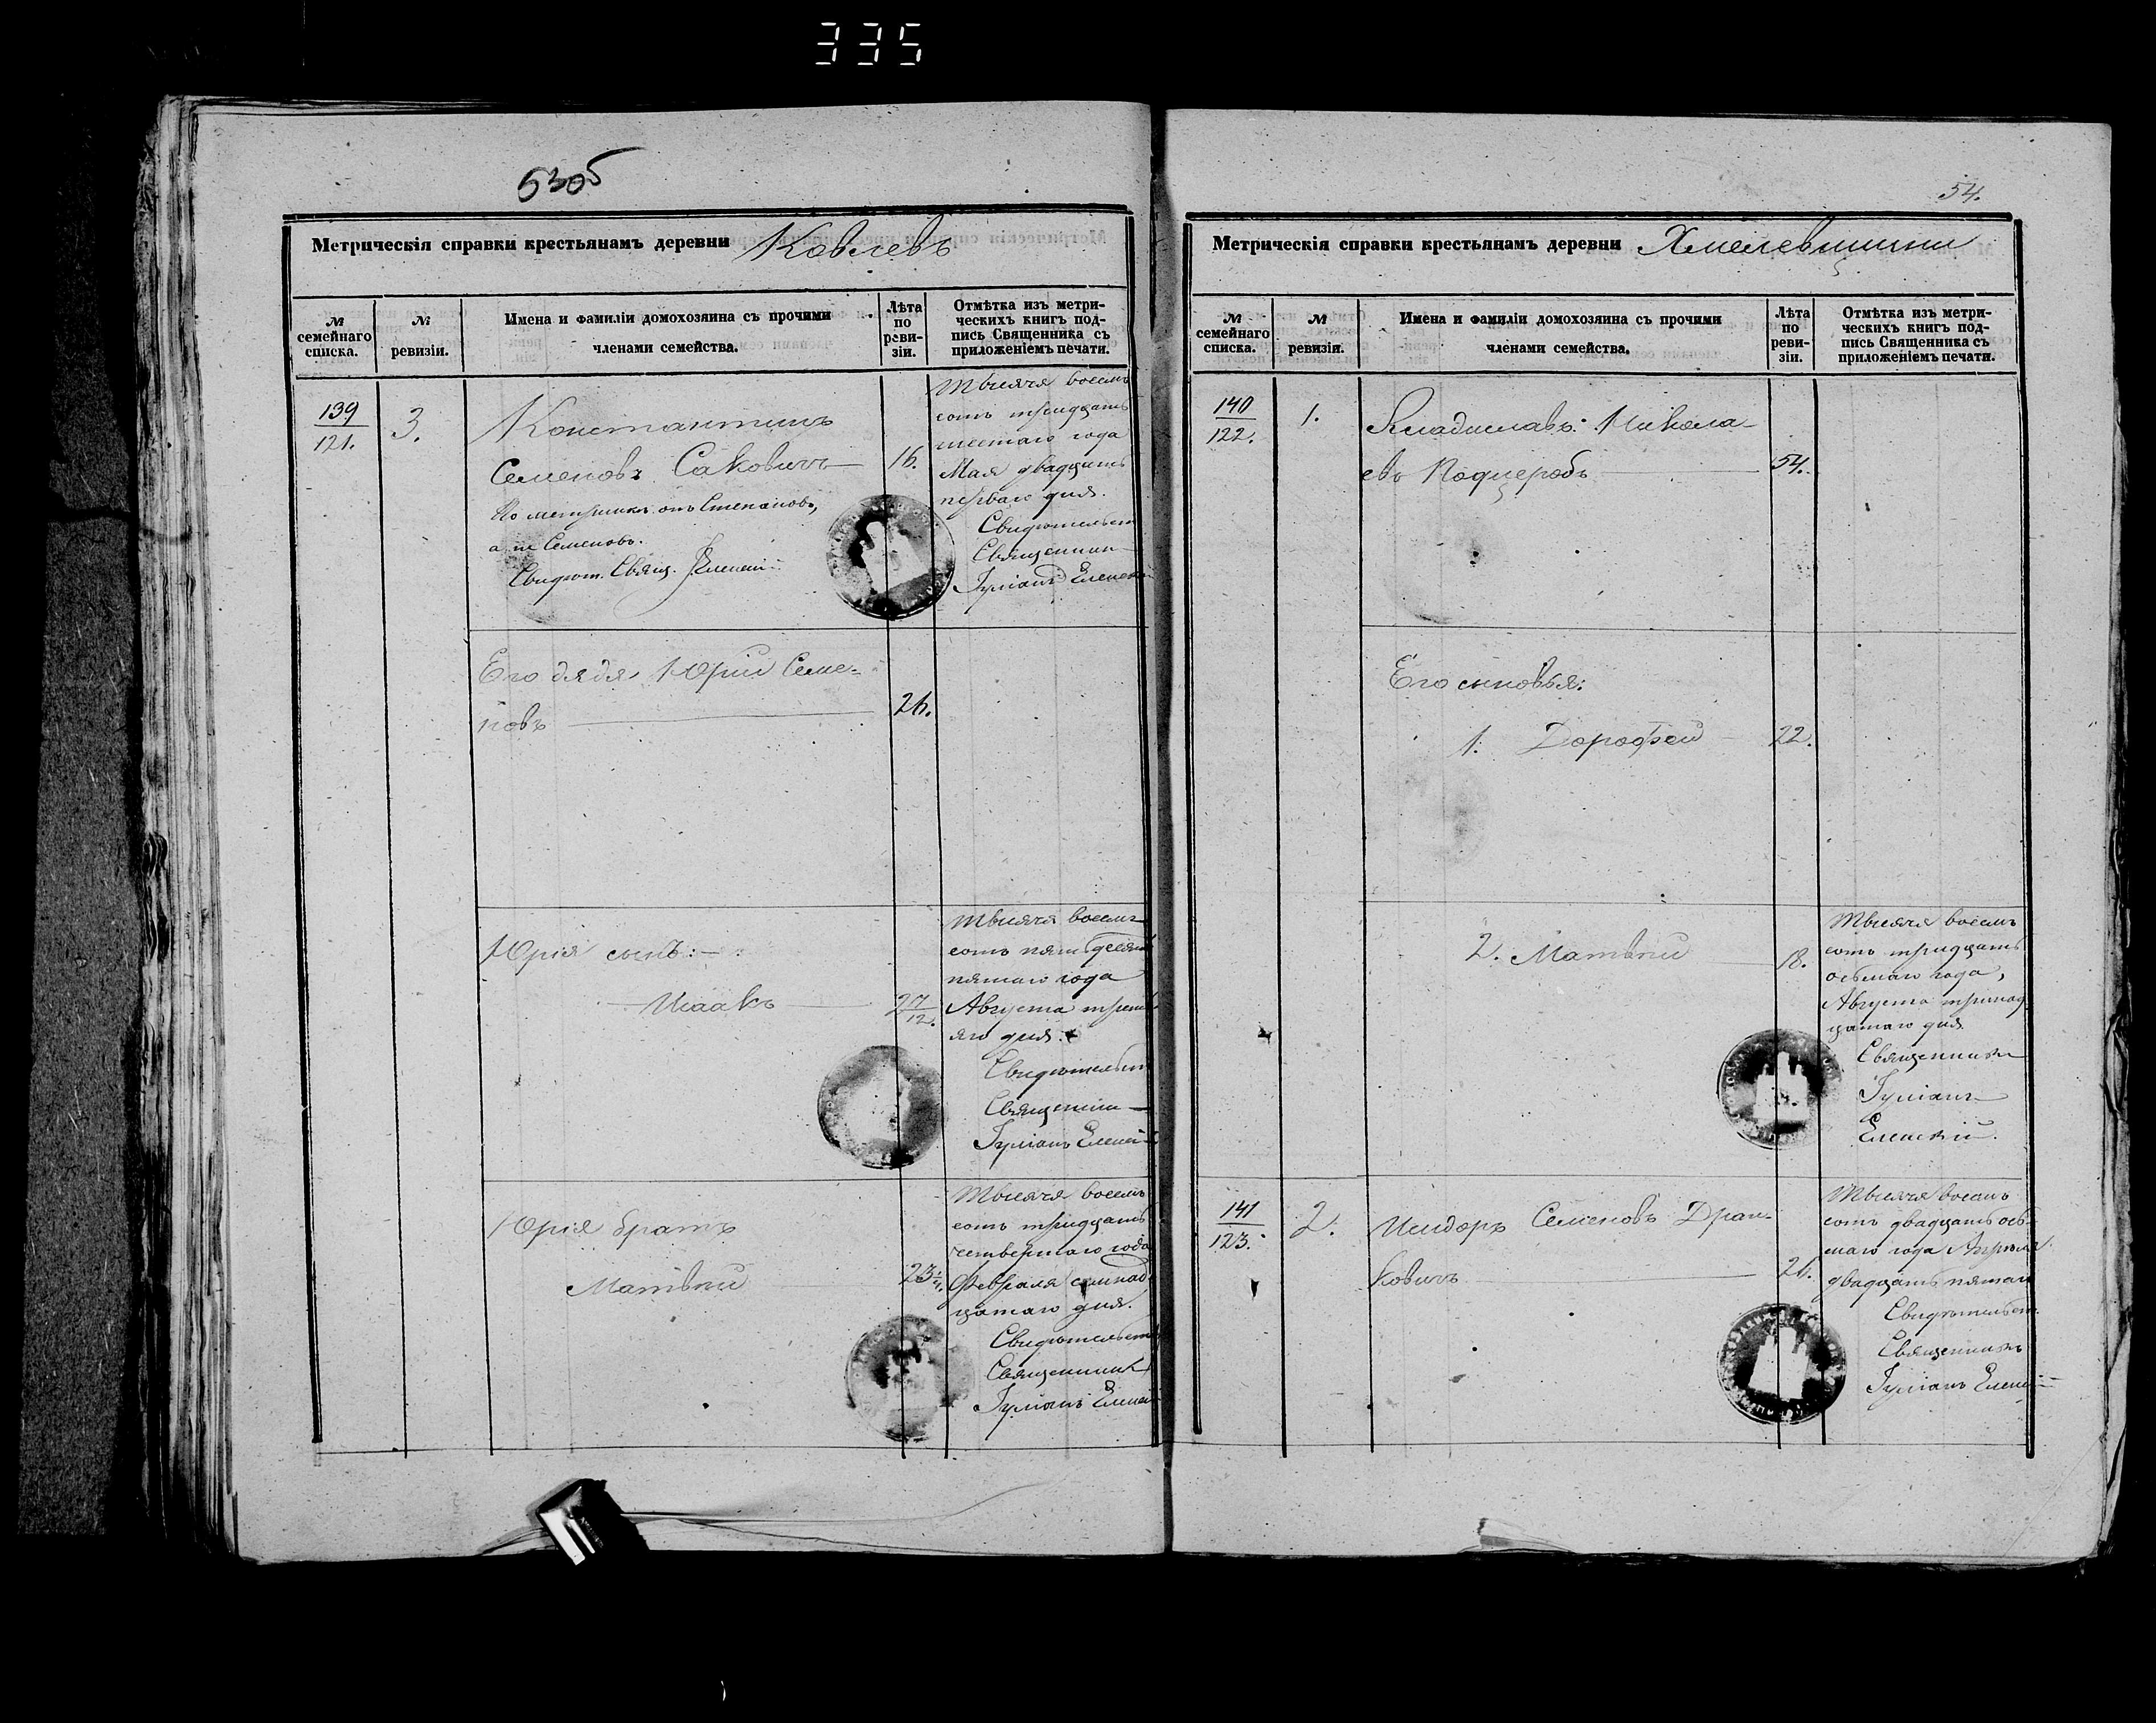 335
53об
Метрическія справки крестьянамъ деревни Ковлевъ
№ семейнаго списка.
№ ревизіи.
Имена и фамиліи домохозяина съ прочими членами семейства.
Лѣта по реви-зіи.
Отмѣтка изъ метри-
ческихъ книгъ под-
пись Священника съ
приложеніемъ печати.
139
121.
3.
Константинъ
Семеновъ Саковичъ
16.
По метрикѣ онъ Степановъ,
а не Семеновъ.
Свидѣт. Свящ. Еленскій
Тысяча восемь
сотъ тридцать
шестаго года
Мая двадцать
перваго дня.
Свидѣтельст
Священник
Іуліанъ Еленскі
Его дядя Юрій Семе-
новъ
26.
Юрія сынъ:
Исаакъ
27/12.
Тысяча восемь
сотъ пятьдесятъ
пятаго года
Августа треть
яго дня.
Свидѣтельст
Священни
Іуліанъ Еленскі
Юрія братъ
Матвѣй
23
Тысяча восемь
сотъ тридцать
четвертаго года
Февраля семнад
цатаго дня.
Свидѣтельст
Священникъ
Іуліанъ Еленскі
54.
Метрическія справки крестьянамъ деревни Хмелевщины
№ семейнаго списка.
№ ревизіи.
Имена и фамиліи домохозяина съ прочими членами семейства.
Лѣта по реви-зіи.
Отмѣтка изъ метри-
ческихъ книгъ под-
пись Священника съ
приложеніемъ печати.
140
122.
1.
Владиславъ Никола-
евъ Подцеробъ
54.
Его сыновья:
1. Дорофей
22.
2. Матвѣй
18.
Тысяча восемь
сотъ тридцать
осьмаго года,
Августа тринад
цатаго дня
Священникъ
Іуліанъ
Еленскій.
141
123.
2.
Исидоръ Семеновъ Дран-
ковичъ
26.
Тысяча восемь
сотъ двадцать ось
маго года Апрѣля
двадцать пятаго
Свидѣтельст.
Священникъ
Іуліанъ Еленскі